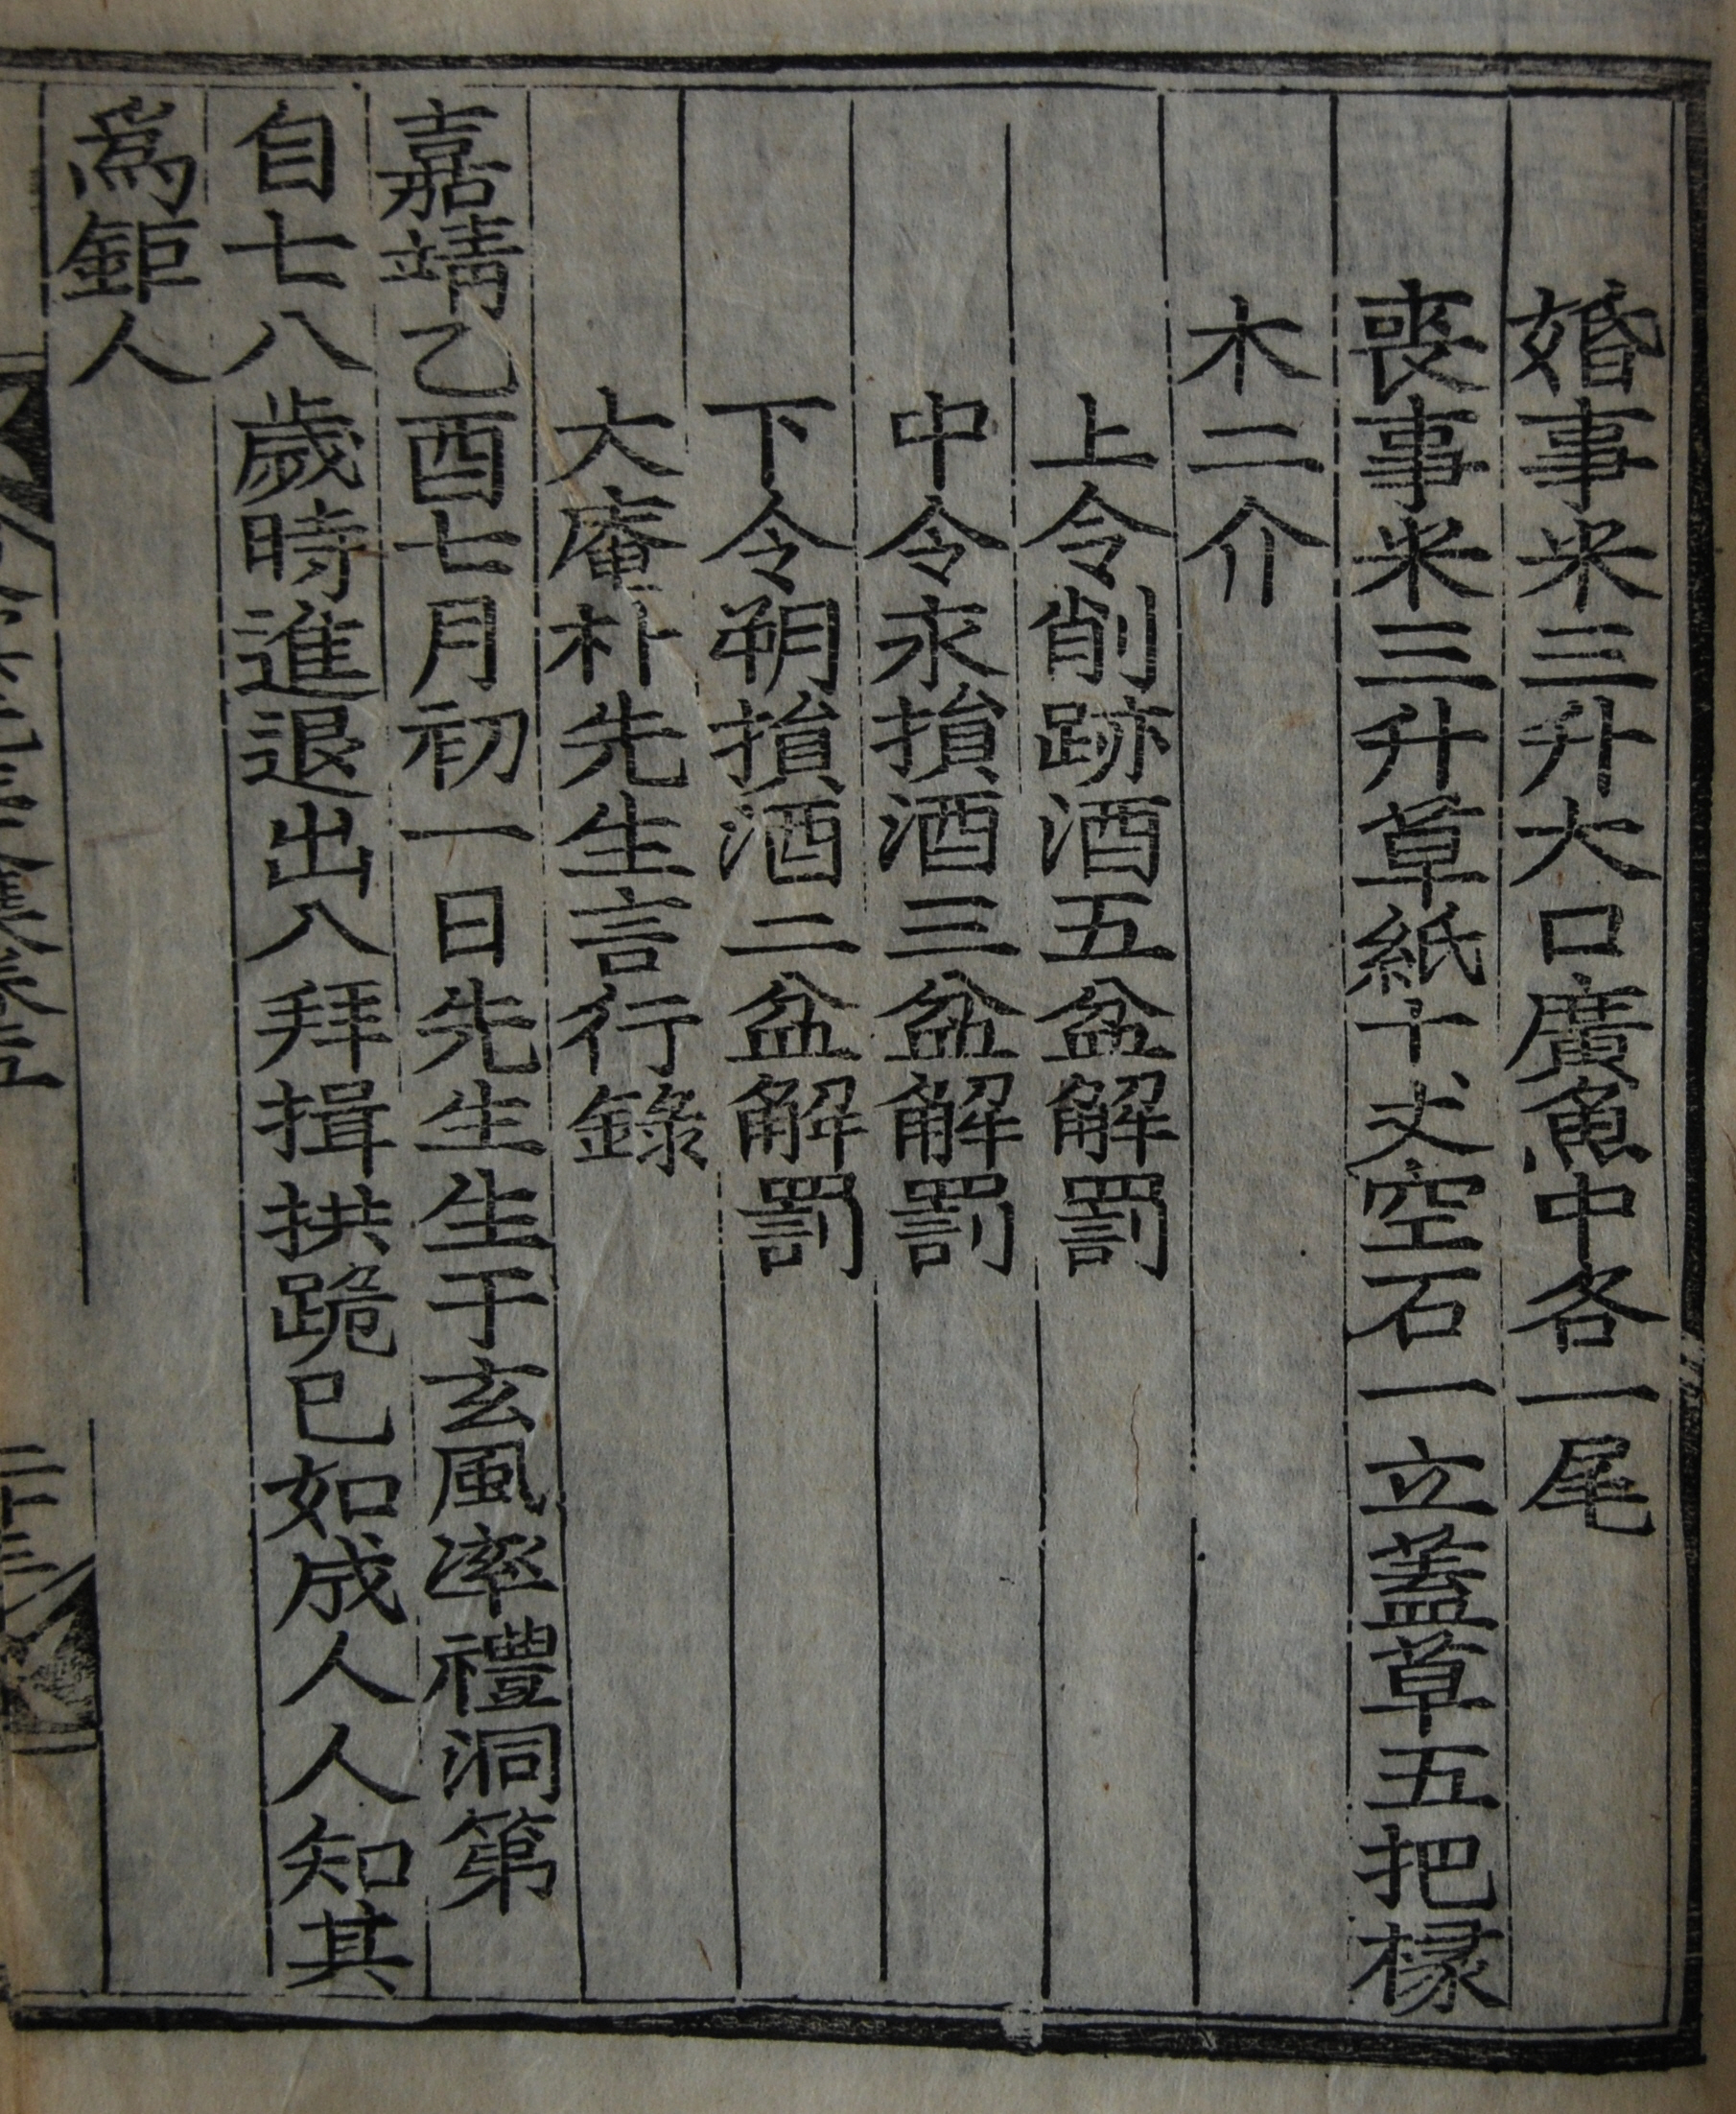 婚事米三升大口廣魚中各一尾
喪事米三升草紙十丈空石一立蓋草五把椽
木二介
上令削跡酒五盆解罰
中令永損酒三盆解罰
下令朔損酒二盆解罰
大庵朴先生言行錄
嘉靖乙酉七月初一日先生生于玄風率禮洞第
自七八歲時進退出入拜揖拱跪已如成人人知其
爲鉅人
二十三